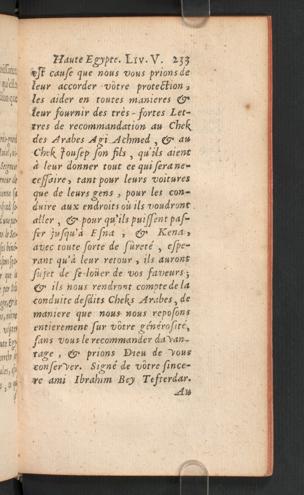 Haute Egypte. Liv. V. 233
est cause que nous vous prions de
leur accorder vôtre protection,
les aider en toutes manieres &
leur fournir des très-fortes Let-
tres de recommandation au Chek
des Arabes Agi Achmed, & au
Chek Jousep son fils, qu'ils aient
à leur donner tout ce qui sera ne-
cessaire, tant pour leurs voitures
que de leurs gens, pour les con-
duire aux endroits où ils voudront
aller, & pour qu'ils puissent pas-
ser jusqu'à Esna, & Kena,
avec toute sorte de sûreté, espe-
rant qu'à leur retour, ils auront
sujet de se loüer de vos faveurs;
& ils nous rendront compte de la
conduite desdits Cheks Arabes, de
maniere que nous nous reposons
entierement sur vôtre générosité,
sans vous le recommander davan-
tage, & prions Dieu de vous
conserver. Signé de vôtre since-
re ami Ibrahim Bey Tefterdar.
Au